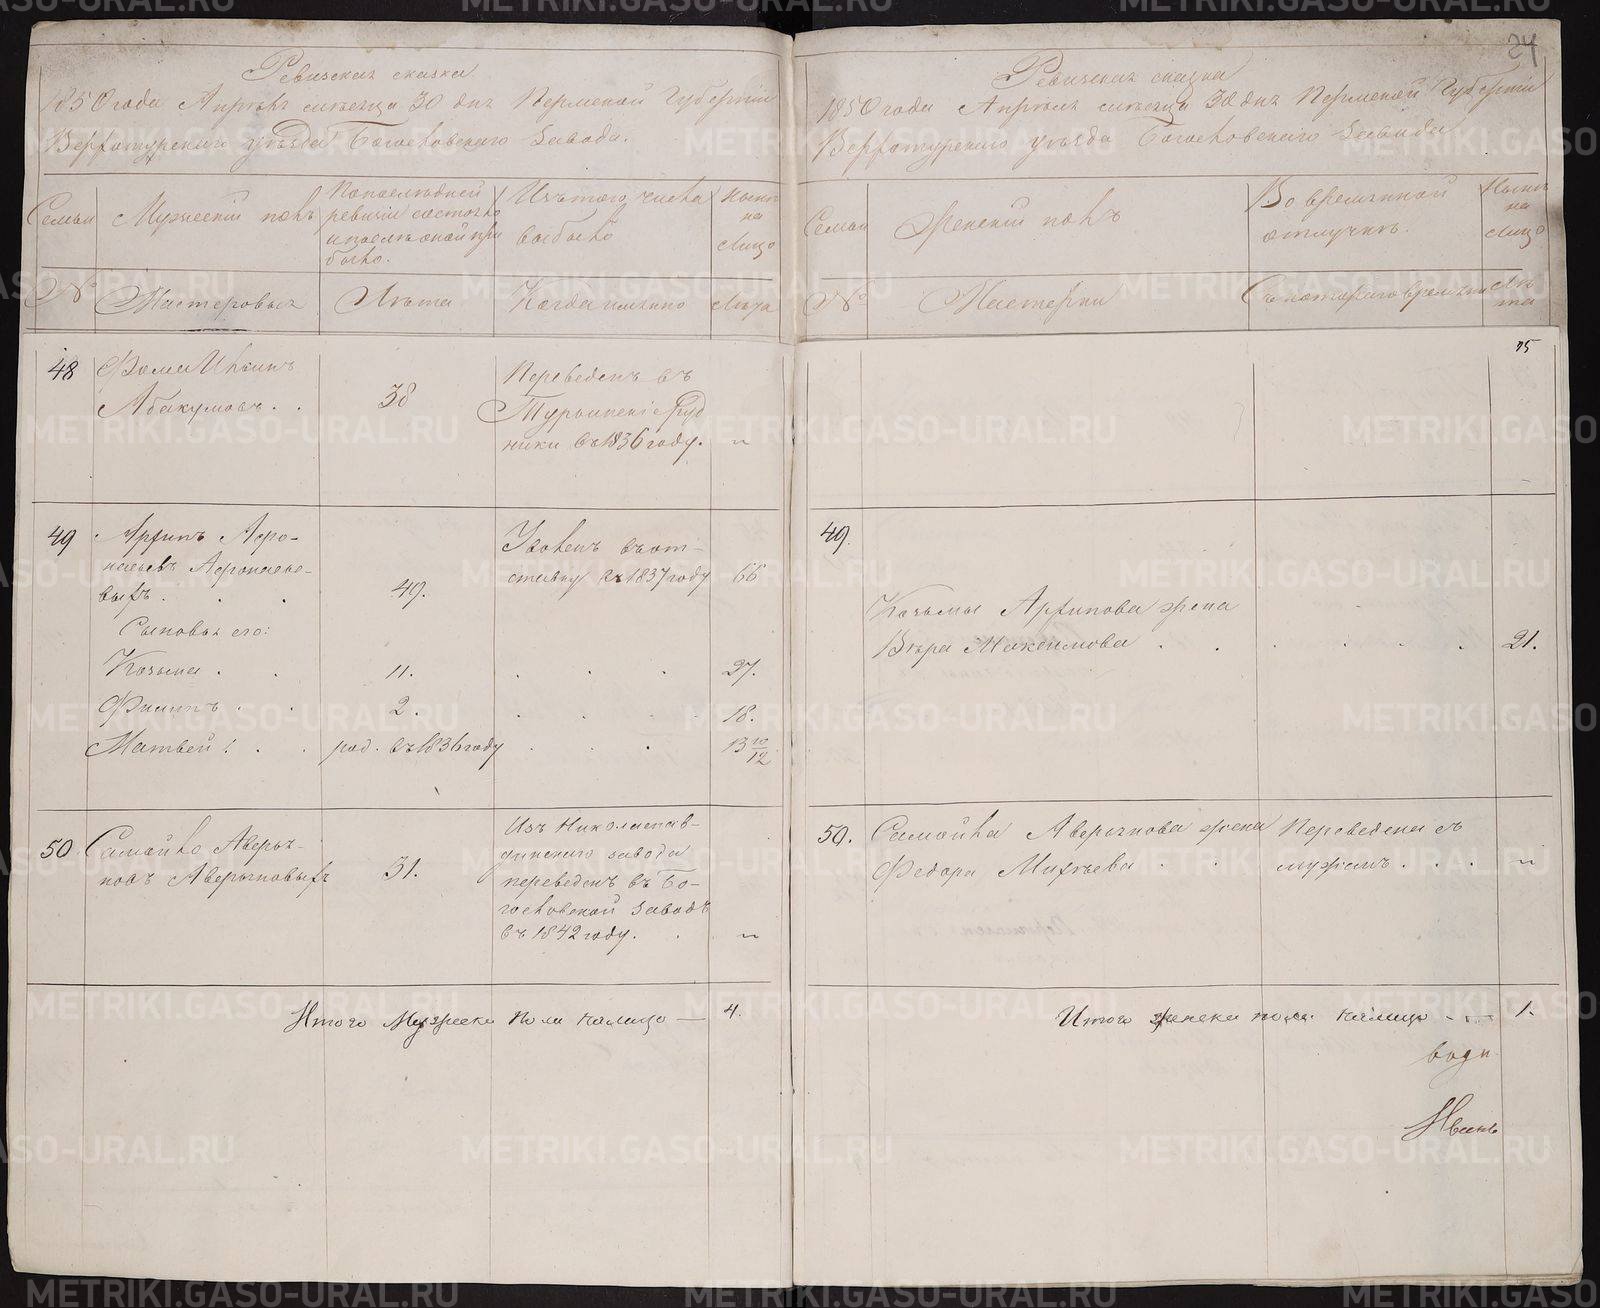 Ревизская сказка
1850 года Апреля месяца 30 дня Пермской Губернии
Верхотурского уезда Богословского Завода.
Семьи
Мужеский полъ
По последней
ревизии состояло
и после оной при
было.
Изъ того числа
выбыло
Ныне
на
Лицо
№
Мастеровыя
Лета
Когда именно
Лета
48
Фома Ильинъ
Абакумовъ . .
38
Переведенъ въ
Турьинские Руд
ники въ 1836 году.
"
49
Архипъ Афо-
насьевъ Афонасье-
выхъ . . .
49.
Уволенъ въ от-
ставку въ 1837 году
66
Сыновья его:
Козьма . .
11.
27.
Филипъ . .
2.
18.
Матвей . .
род. въ 1836 году
13 10/12
50
Самойло Аверья-
новъ Аверьяновыхъ
31.
Изъ Николаепав-
динского завода
переведенъ въ Бо-
гословской Заводъ
въ 1842 году. .
"
Итого Мужеска пола налицо —
4.
24
Ревизская сказка
1850 года Апреля месяца 30 дня Пермской Губернии
Верхотурского уезда Богословского Завода
Семьи
Женский полъ
Во временной
отлучке.
Ныне
на
Лицо
№
Мастерки
Съ котораго времени
Ле
та
25
49.
Козьмы Архипова жена
Вера Максимова . . . . . .
21.
50.
Самойла Аверьянова жена
Федора Михеева . .
Переведена съ
мужемъ . . .
"
Итого женска пола налицо . —
1.
Иванъ
METRIKI.GASO-URAL.RU